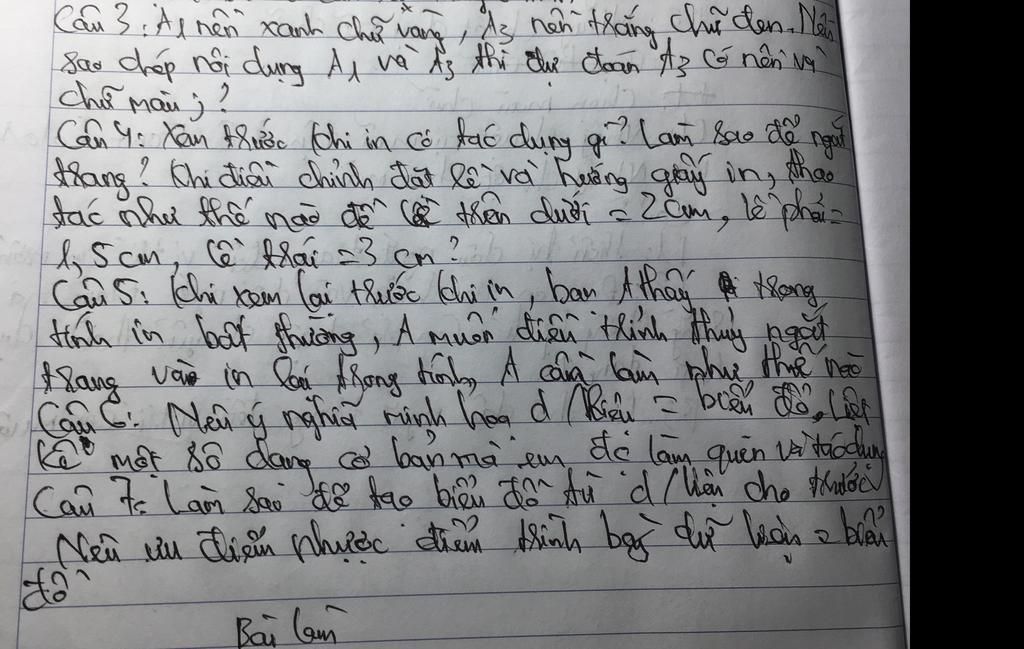 Câu 3: A1 nền xanh chữ vàng, A3 nền trắng chữ đen. Nếu
sao chép nội dung A1 và A3 thì dự đoán A3 có nền và
chữ màu j?
Câu 4: Xem trước khi in có tác dụng gì? Làm sao để ngắt
trang? Khi điều chỉnh đặt lề và hướng giấy in, thao
tác như thế nào để lề trên dưới = 2cm, lề phải =
1,5cm, lề trái = 3 cm?
Câu 5: Khi xem lại trước khi in, bạn A thấy trang
tính in bất thường, A muốn điều trỉnh thủy ngắt
trang và in lại trang tính, A cần làm như thế nào
Câu 6: Nêu ý nghĩa minh họa d/liệu = biểu đồ. Liệt
kê một số dạng cơ bản mà em đc làm quen và tác dụng
Câu 7: Làm sao để tạo biểu đồ từ d/liệu cho trước
Nêu ưu điểm nhược điểm trình bày dữ liệu = biểu
đồ
Bài làm